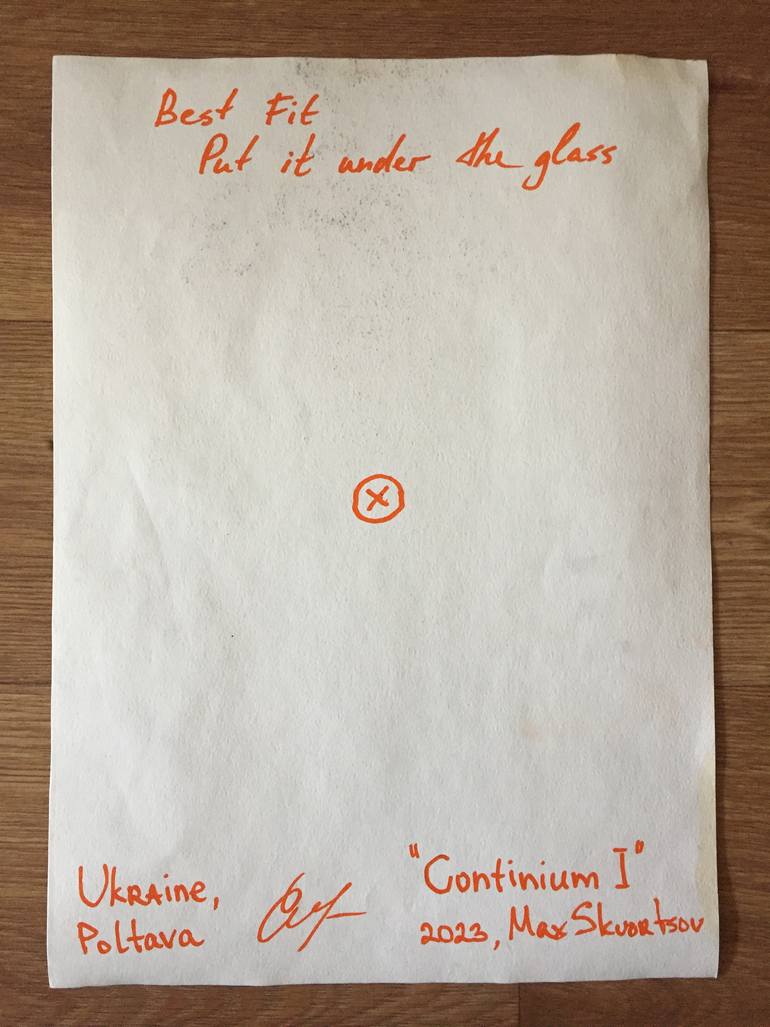 Best Fit
Put it under the glass
Ukraine,
Poltava
"Continium I"
2023, Max Skvortsov